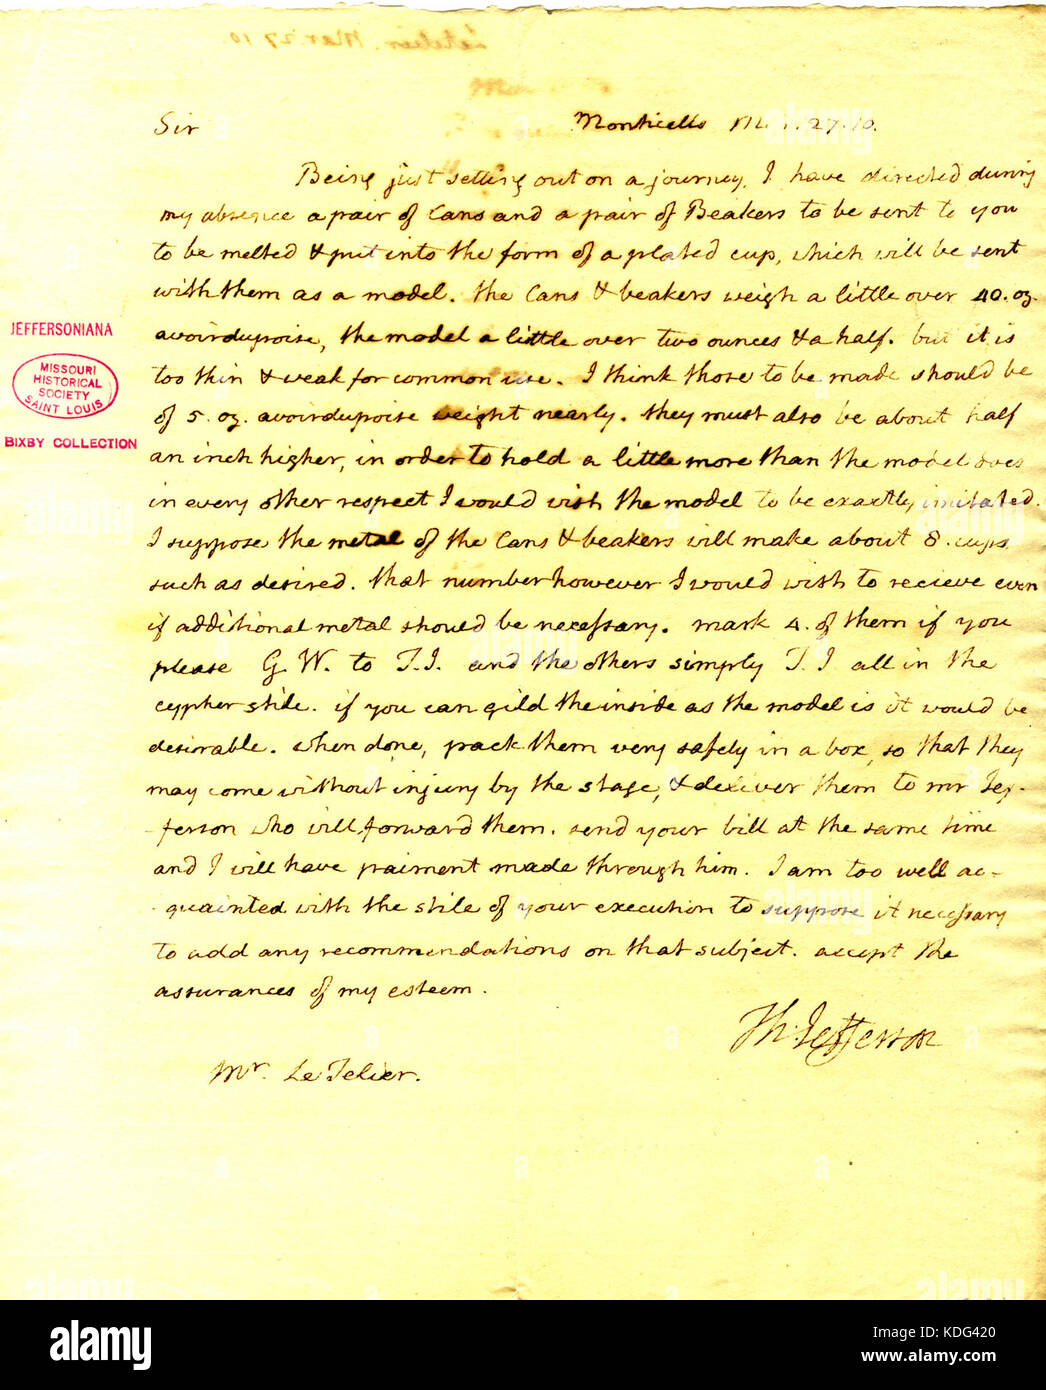 Letelier. Mar. 27 10.
Sir
Monticello Mar. 27. 10.
Being just setting out on a journey, I have directed during
my absence a pair of Cans and a pair of Beakers to be sent to you
to be melted & put into the form of a plated cup, which will be sent
with them as a model. the Cans & beakers weigh a little over 40. oz.
avoirdupoise, the model a little over two ounces & a half. but it is
too thin & weak for common use. I think those to be made should be
of 5. oz. avoirdupoise weight nearly. they must also be about half
an inch higher, in order to hold a little more than the model does
in every other respect I would wish the model to be exactly imitated.
I suppose the metal of the Cans & beakers will make about 8. cups
such as desired. that number however I would wish to recieve even
if additional metal should be necessary. mark 4. of them if you
please G. W. to T. J. and the others simply T. J all in the
cypher stile. if you can gild the inside as the model is it would be
desirable. when done, pack them very safely in a box, so that they
may come without injury by the stage, & deliver them to mr Jef-
-ferson who will forward them. send your bill at the same time
and I will have paiment made through him. I am too well ac-
-quainted with the stile of your execution to suppose it necessary
to add any recommendations on that subject. accept the
assurances of my esteem.
Th: Jefferson
Mr. Le Telier.
JEFFERSONIANA
MISSOURI
HISTORICAL
SOCIETY
SAINT LOUIS
BIXBY COLLECTION
alamy
Image ID: KDG420
www.alamy.com